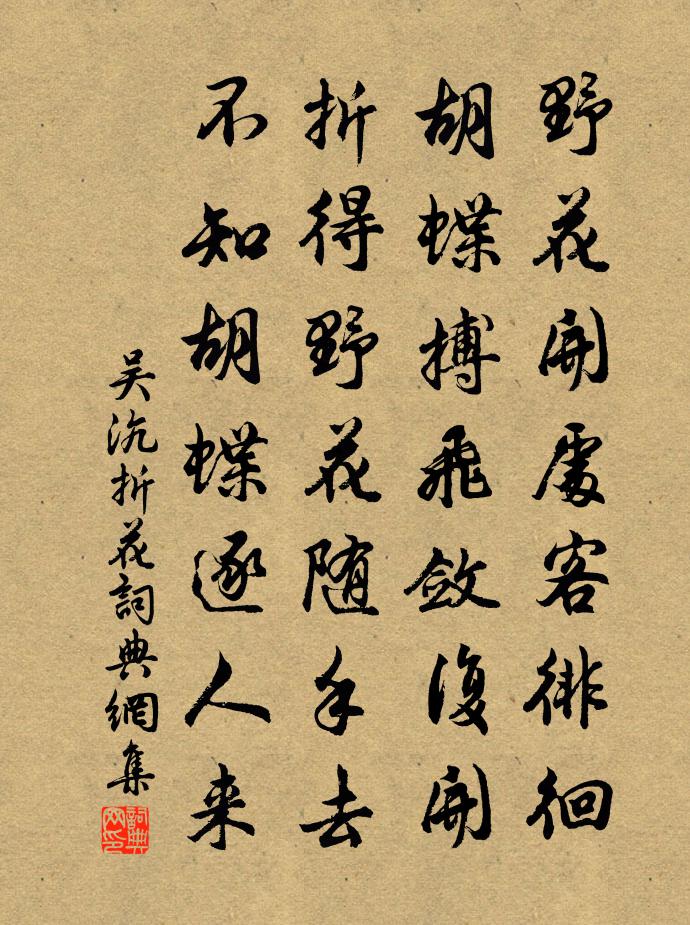 野花開處客徘徊
胡蝶搏飛斂復開
折得野花随手去
不知胡蝶逐人来
吴沆折花詞典網集
詞典網印